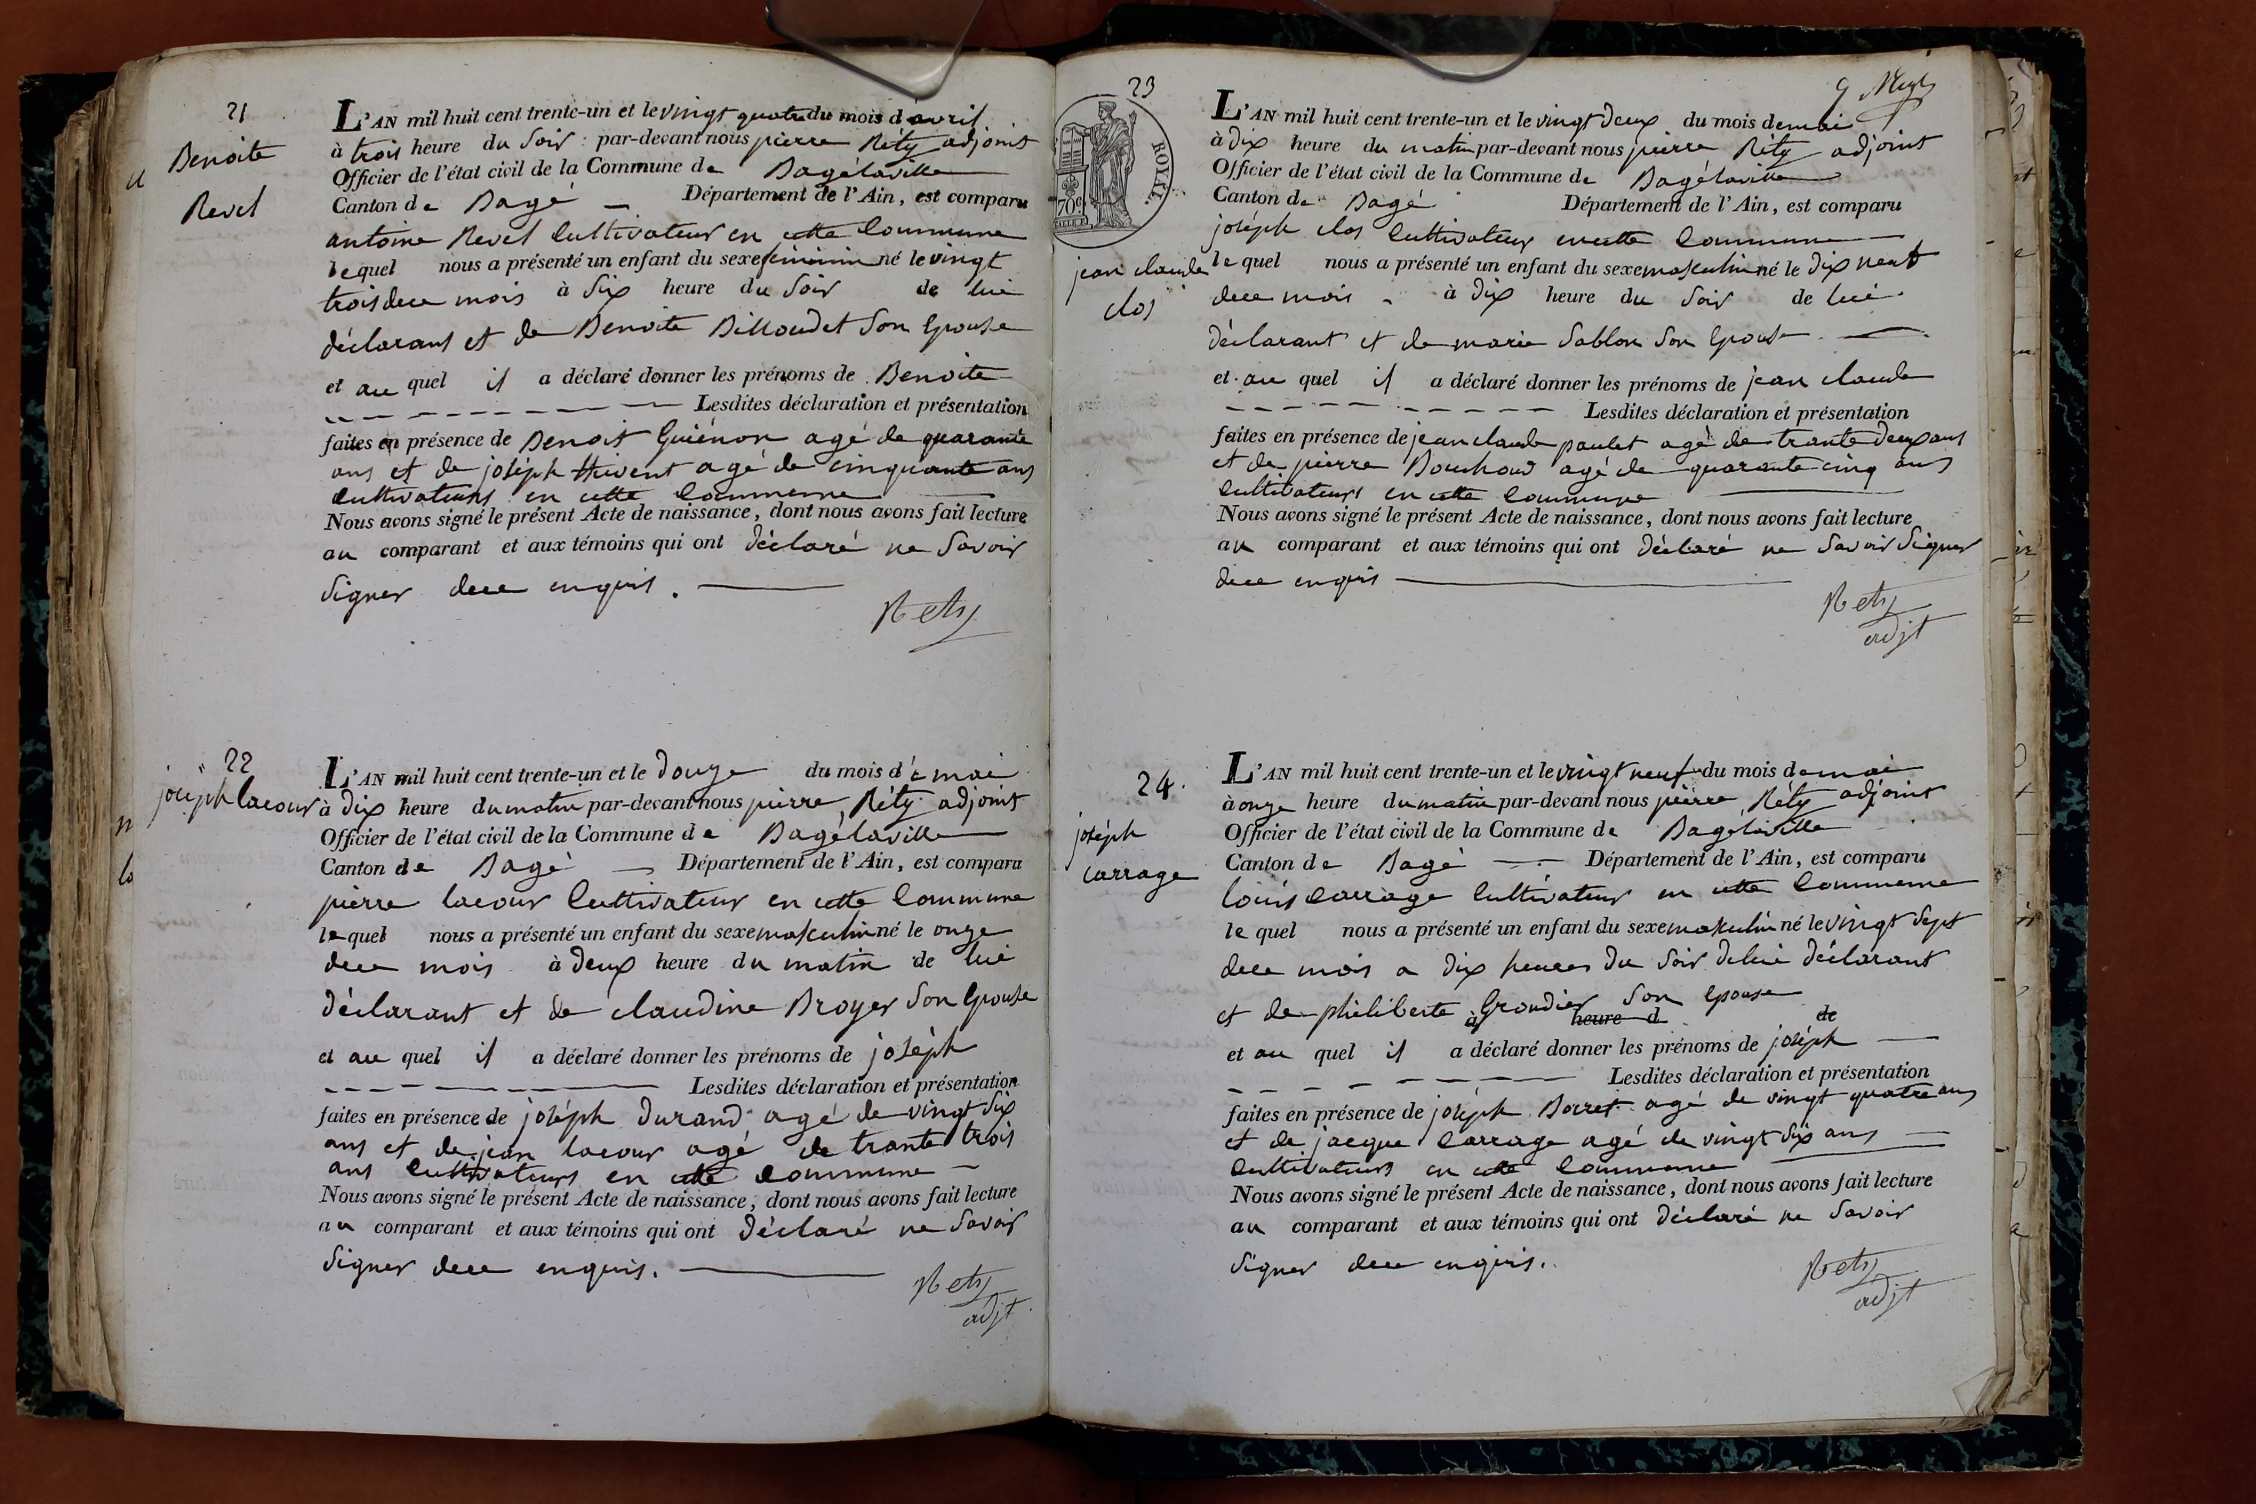 21
Benoite
Revel
L'AN mil huit cent trente-un et le vingt quatre du mois d'avril
à trois heure du Soir par-devant nous pierre Réty adjoint
Officier de l'état civil de la Commune de Bagélaville
Canton de Bagé Département de l'Ain, est comparu
antoine Revel Cultivateur en cette Commune
lequel nous a présenté un enfant du sexe feminin né le vingt
trois dece mois à Six heure du Soir de lui
déclarant et de Benoite Billoudet Son Epouse
et au quel il a déclaré donner les prénoms de Benoite
Lesdites déclaration et présentation
faites en présence de Benoit Guiénon agé de quarante
ans et de joséph thivent agé de cinquante ans
Cultivateurs en cette Commune
Nous avons signé le présent Acte de naissance, dont nous avons fait lecture
au comparant et aux témoins qui ont déclaré ne Savoir
Signer dece enquis.
Rety
22
joséph lacour
L'AN mil huit cent trente-un et le douze du mois de mai
à dix heure du matin par-devant nous pierre Réty adjoint
Officier de l'état civil de la Commune de Bagélaville
Canton de Bagé Département de l'Ain, est comparu
pierre lacour Cultivateur en cette Commune
lequel nous a présenté un enfant du sexe masculin né le onze
dece mois à deux heure du matin de lui
déclarant et de claudine Broyer Son Epouse
et au quel il a déclaré donner les prénoms de joséph
Lesdites déclaration et présentation
faites en présence de joséph durand agé de vingt Six
ans et de jean lacour agé de trante trois
ans Cultivateurs en cette Commune
Nous avons signé le présent Acte de naissance, dont nous avons fait lecture
au comparant et aux témoins qui ont déclaré ne Savoir
Signer dece enquis.
Rety
adjt
23
ROYAL.
70c
jean claude
clos
L'AN mil huit cent trente-un et le vingt deux du mois de mai
à dix heure du matin par-devant nous pierre Réty adjoint
Officier de l'état civil de la Commune de Bagélaville
Canton de Bagé Département de l'Ain, est comparu
joséph clos Cultivateur en cette Commune
lequel nous a présenté un enfant du sexe masculin né le dix neuf
dece mois à dix heure du Soir de lui
déclarant et de marie Sablon Son Epouse
et au quel il a déclaré donner les prénoms de jean claude
Lesdites déclaration et présentation
faites en présence de jean claude paulet agé de trante deux ans
et de pierre Bouchoud agé de quarante cinq ans
Cultivateurs en cette Commune
Nous avons signé le présent Acte de naissance, dont nous avons fait lecture
au comparant et aux témoins qui ont déclaré ne Savoir Signer
dece enquis
Rety
adjt
24.
joséph
carrage
L'AN mil huit cent trente-un et le vingt neuf du mois de mai
à onze heure du matin par-devant nous pierre Réty adjoint
Officier de l'état civil de la Commune de Bagélaville
Canton de Bagé Département de l'Ain, est comparu
louis Carrage Cultivateur en cette Commune
lequel nous a présenté un enfant du sexe masculin né le vingt Sept
dece mois a dix heures du Soir de lui déclarant
et de philiberte Grondier Son Epouse
à heure d de
et au quel il a déclaré donner les prénoms de joséph
Lesdites déclaration et présentation
faites en présence de joséph Borret agé de vingt quatre ans
et de jacque Carrage agé de vingt Six ans
Cultivateurs en cette Commune
Nous avons signé le présent Acte de naissance, dont nous avons fait lecture
au comparant et aux témoins qui ont déclaré ne Savoir
Signer dece enquis.
Rety
adjt